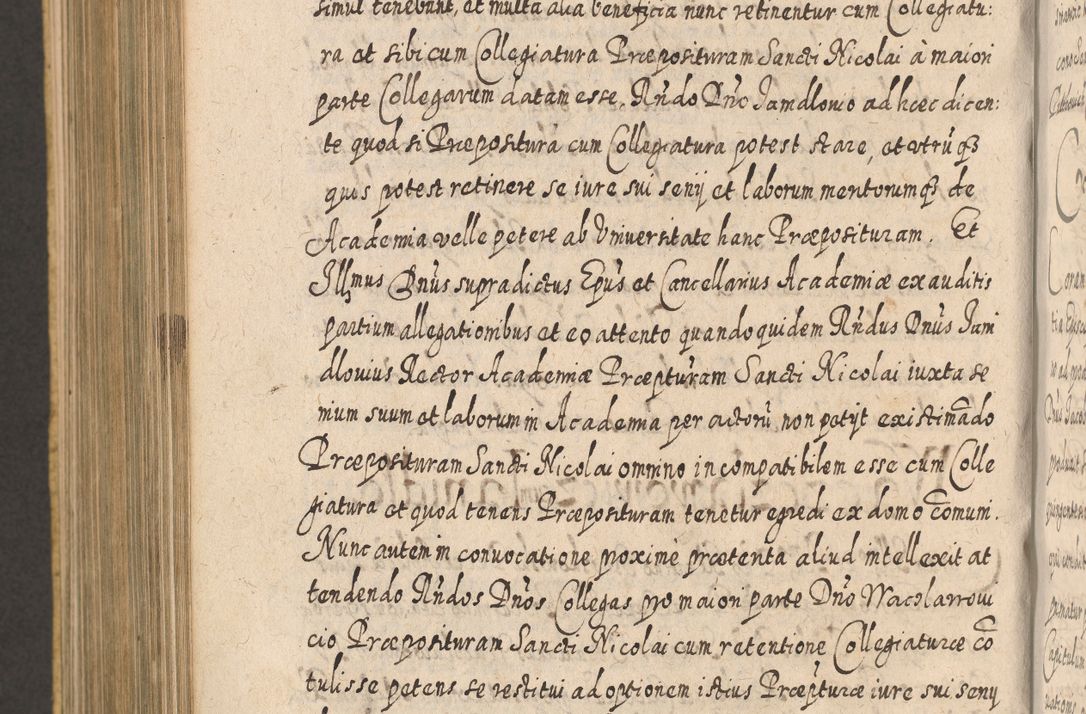 simul tenebant, et multa alia beneficia nunc retinentur cum Collegiatu:
ra et sibi cum Collegiatura Præposituram Sancti Nicolai à maiori
parte Collegarum datam esse. Rńdo Dńo Jamdlouio ad hæc dicen:
te quod si Præpositura cum Collegiatura potest stare, et vtrūq3
quis potest retinere se iure sui senij et laborum meritorumq3 de
Academia velle petere ab Vniuersitate hanc Præposituram. Et
Illmus Dńus supradictus Epūs et Cancellarius Academiæ exauditis
partium allegationibus et eo attento quandoquidem Rńdus Dńus Jam
dlouius Rector Academiæ Præpturam Sancti Nicolai iuxta se
nium suum et laborum in Academia per actorū non petijt existimādo
Præposituram Sancti Nicolai omnino incompatibilem esse cum Colle
giatura et quod tenens Præposituram tenetur egredi ex domo cōmuni.
Nunc autem in conuocatione proximè prætenta aliud intellexit at
tendendo Rńdos Dńos Collegas pro maiori parte Dńo Wacslawoui
cio Præposituram Sancti Nicolai cum retentione Collegiaturæ cō
tulisse petens se restitui ad optionem istius Præpturæ iure sui senij